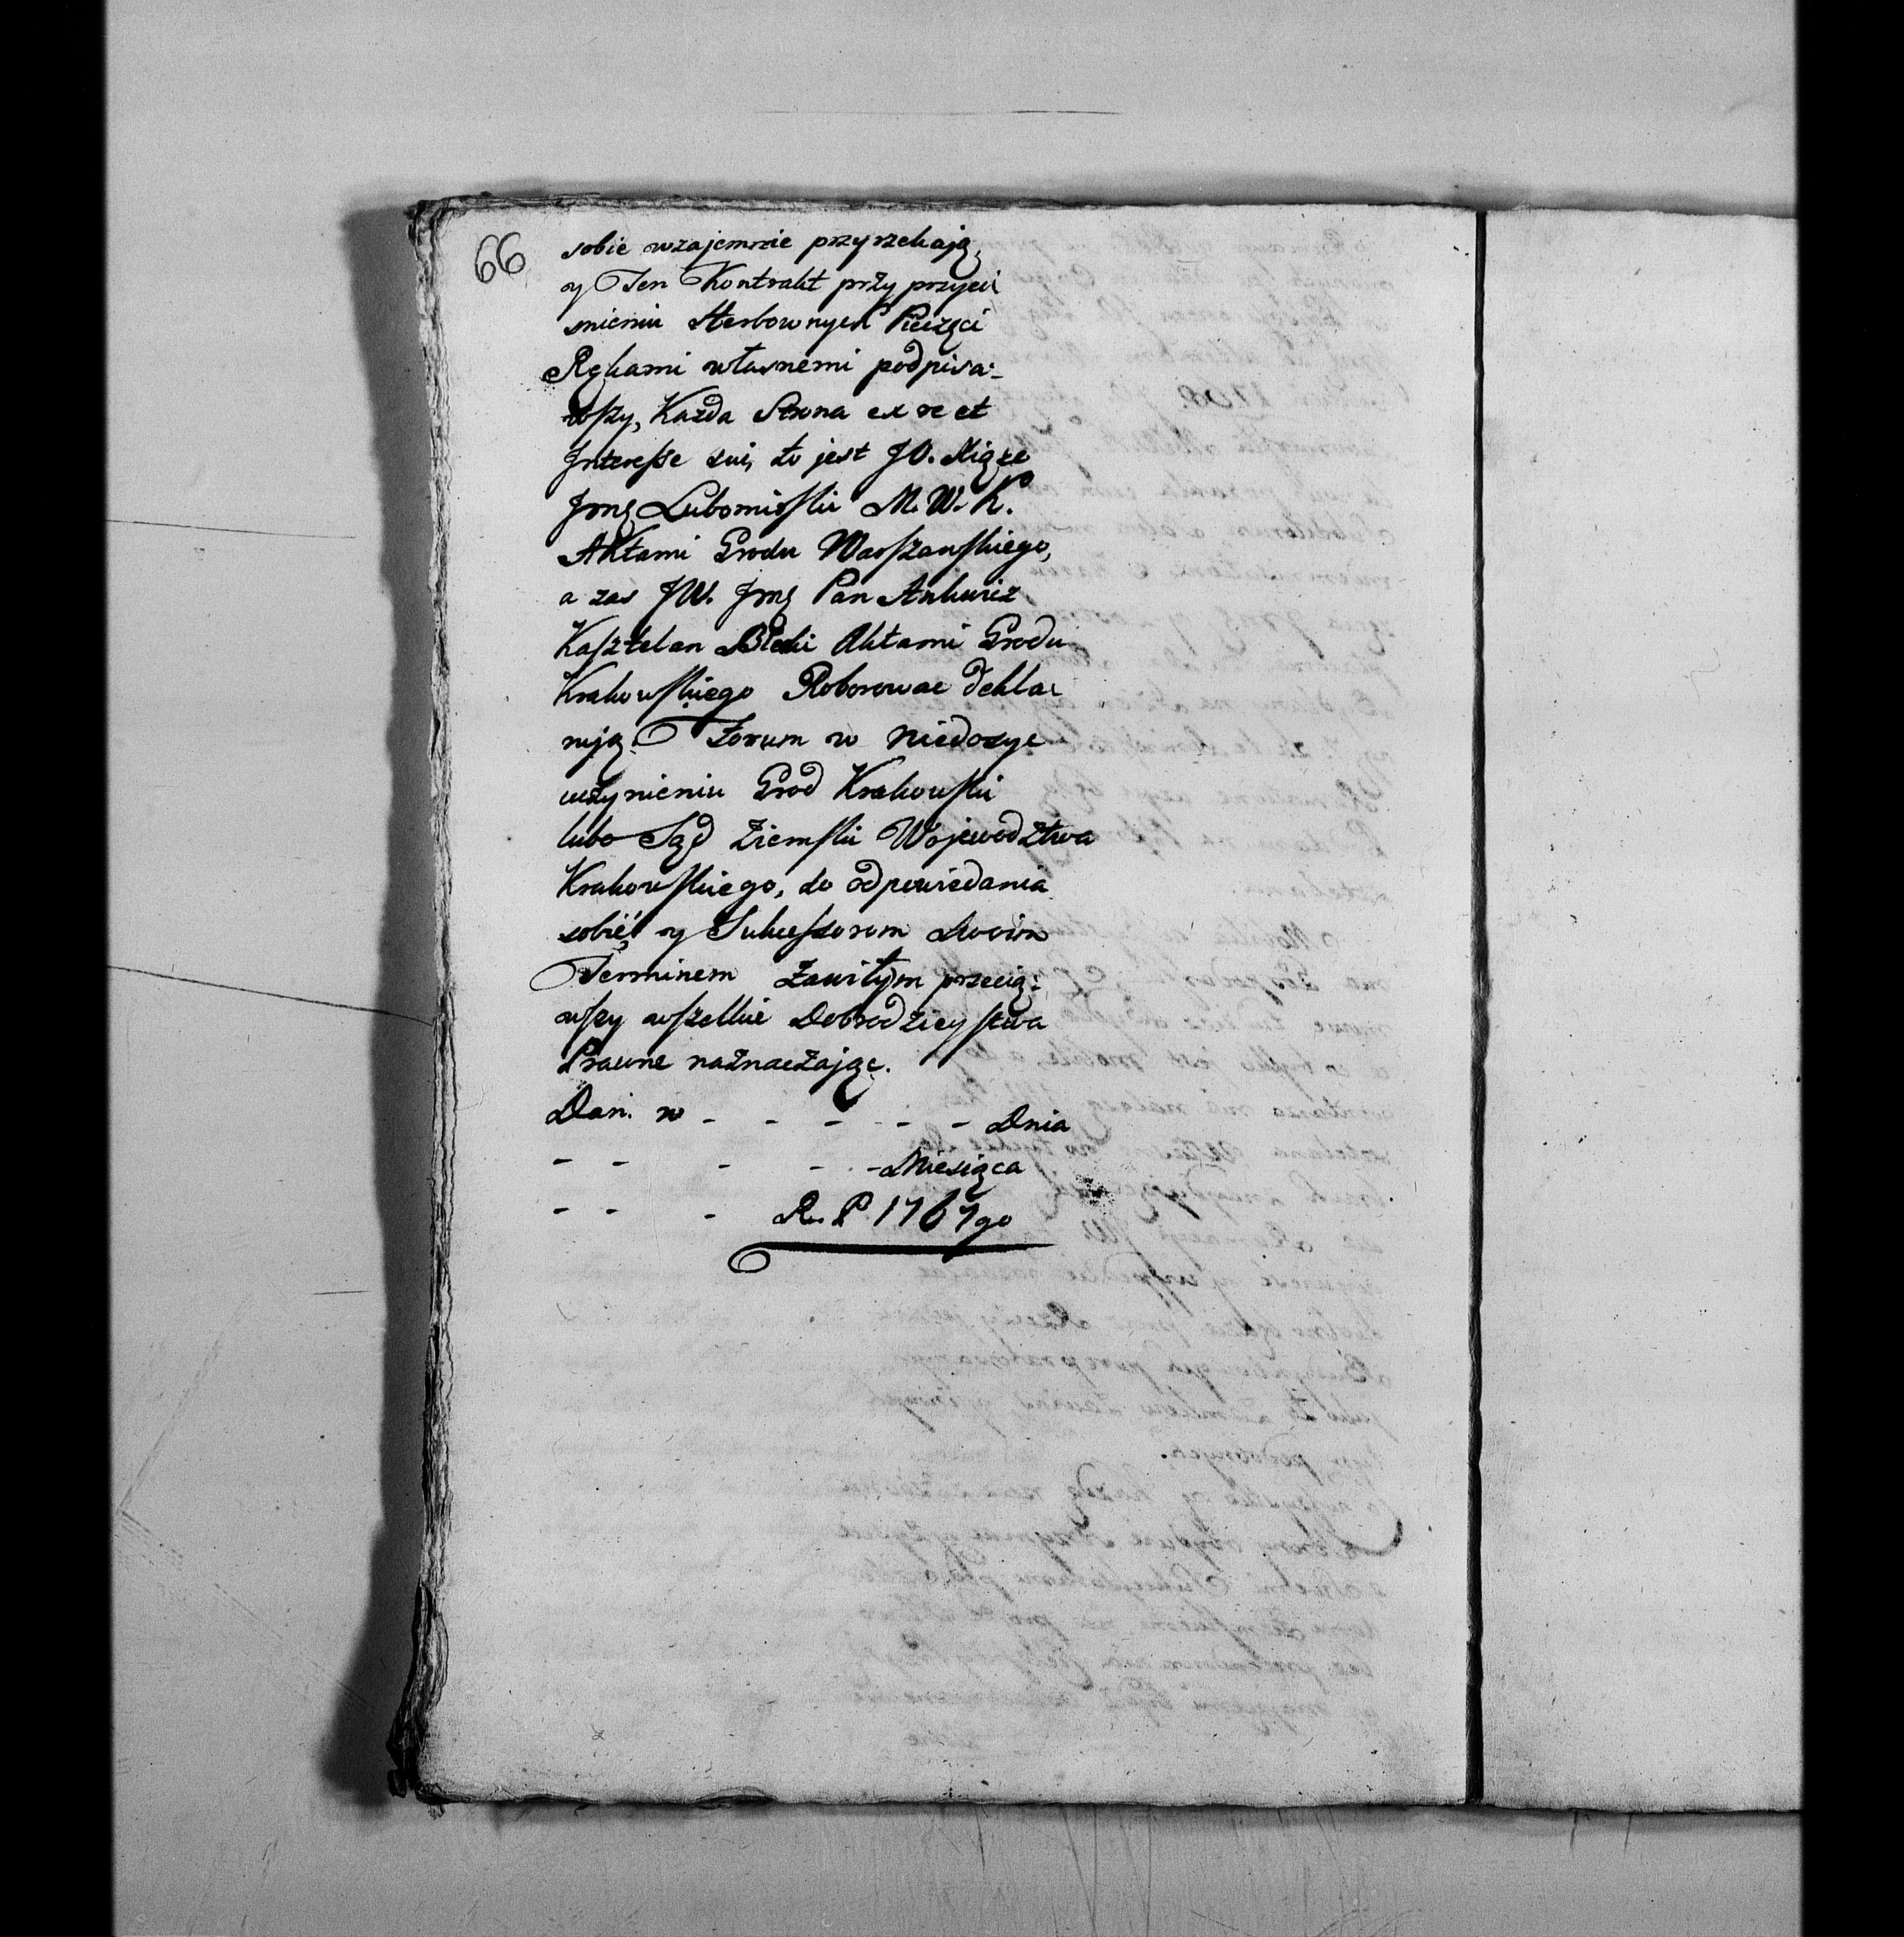 66
sobie wzajemnie przyrzekają,
y Ten Kontrakt przy przyci
snieniu Herbownych Pieczęci
Rękami własnemi podpisa-
wszy, Kazda Strona ex re et
Interesse sui, to jest JO. Xiąze
Jmę Lubomirski M. W. K.
Aktami Grodu Warszawskiego,
a zas JW. Jmę Pan Ankwicz
Kasztelan Aktami Grodu
Krakowskiego Roborowac dekla-
rują. Forum w niedosyc
uczynieniu Grod Krakowski
lubo Sąd Ziemski Wojewodztwa
Krakowskiego, do odpowiedania
sobie, y Sukcessorom Swoim
Terminem Zawitym przecią-
wszy wszelkie Dobrodzieystwa
Prawne naznaczając.
Dan. w - - - - - Dnia
- - - - - Miesiąca
- - - R. P. 1767go